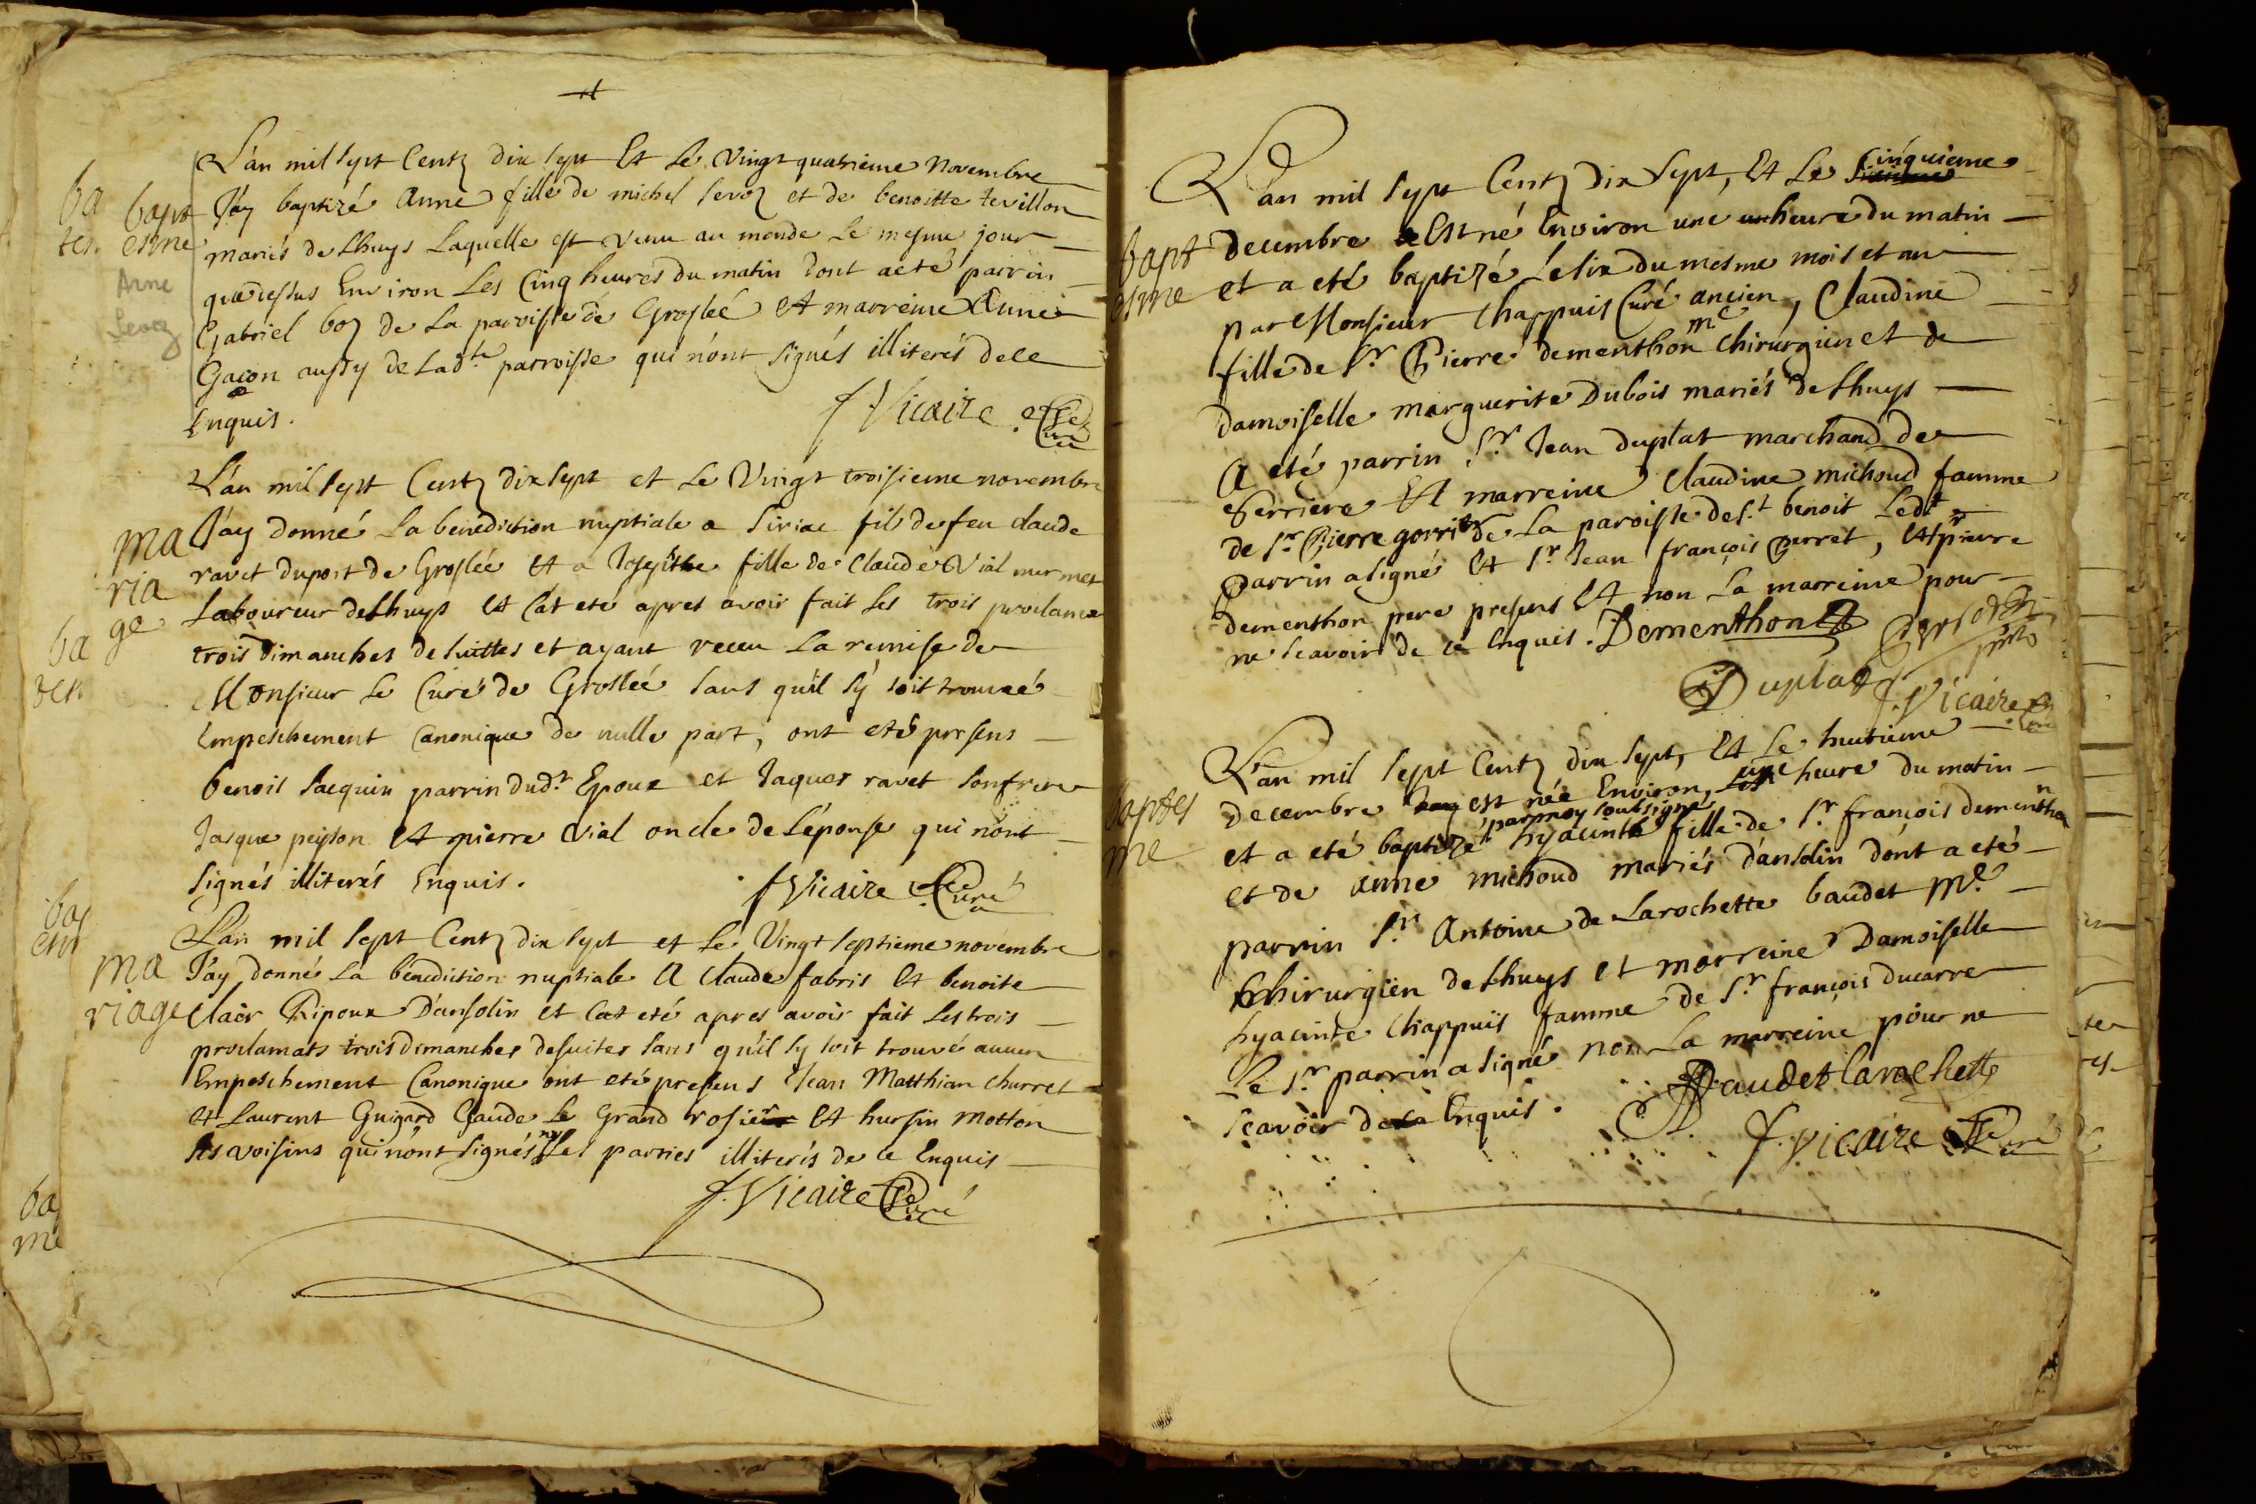 L'an mil sept Centz dix sept Et Le vingt quatrieme Novembre
bapt J'ay baptizé Anne fille de michel sevoz et de benoitte tevillon
esme mariés de Lhuys Laquelle est venu au monde Le mesme jour
Anne Sevoz
que dessus Environ Les Cinq heures du matin dont a eté parrin
Gabriel boz de La parroisse de Groslée Et marreine Anne
Gacon aussy de Lad.te parroisse qui n'ont signés illiterés de ce
Enquis.
f Vicaire Curé
L'an mil sept Centz dix sept et Le Vingt troisieme novembre
ma J'ay donné La benediction nuptiale a Siriac fils de feu claude
ria ravet du port de Groslée Et a Josepthe fille de Claude Vial mermet
ge Laboureur de Lhuys Et C'at eté apres avoir fait Les trois proclamā
trois Dimanches de suittes et ayant receu La remise de
Monsieur Le Curé de Groslée sans qu'il s'y soit trouvé
Empeschement Canonique de nulle part, ont eté presens
benoit Jacquin parrin dud.t Epoux et Jaques ravet son frere
Jasque peyson Et pierre Vial oncle de L'eponse qui n'ont
signés illiterés Enquis.
f Vicaire Curé
L'an mil sept Centz dix sept et Le Vingt septieme novembre
ma J'ay donné La benediction nuptiale A Claude fabris Et benoite
riage Clair Ripoux D'ansolin et C'at eté apres avoir fait Les trois
proclamats trois dimanches de suites sans qu'il s'y soit trouvé aucun
Empeschement Canonique ont eté presens Jean Matthian churret
Et Laurent Guigard Claude Le Grand rosier Et hursin Motton
ses voisins qui n'ont signés ny Les parties illiterés de ce Enquis
f. Vicaire Curé
L'an mil sept Centz dix sept, Et Le Cinquieme
bapt decembre Est né Environ une heure du matin
esme et a eté baptizé Le six du mesme mois et an
par Monsieur Chappuis Curé ancien, Claudine
fille de S.r Pierre dementhon m.e Chirurgien et de
Damoiselle marguerite Dubois mariés de Lhuys
A eté parrin S.r Jean duplat marchand de
Perriere Et marreine Claudine michoud famme
de S.r Pierre gorrit de La paroisse de S.t benoit Led.t
Parrin a signé Et S.r Jean françois perret, Et S.r pierre
dementhon pere presens Et non La marreine pour
ne scavoir de ce Enquis. Dementhon
Duplat f. Vicaire Curé
L'an mil sept Centz dix sept, Et Le huitieme
baptes decembre est née Environ une heure du matin
me et a eté baptizé par moy soubsigné hyacinte fille de S.r françois dementhon
et de Anne michoud mariés d'ansolin dont a eté
parrin S.r Antoine de Larochette baudet M.e
Chirurgien de Lhuys et marreine Damoiselle
hyacinte Chappuis famme de S.r françois ducarre
Le S.r parrin a signé non La marreine pour ne
scavoir de ce Enquis.
A. Baudet Larochette
f. Vicaire Curé